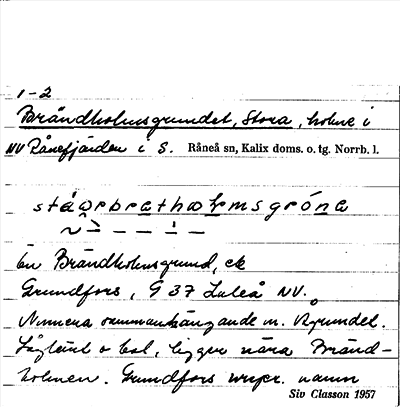 1-2
Brändholmsgrundet, Stora, holme i
NV Rånefjärden i S. Råneå sn, Kalix doms. o. tg. Norrb. l.
En Brändholmsgrund, ek
Grundfors, G 37 Luleå NV.
Numera sammanhängande m.
Låglänt o kal, ligger nära Bränd-
holmen. Grundfors urspr. namn
Siv Classon 1957